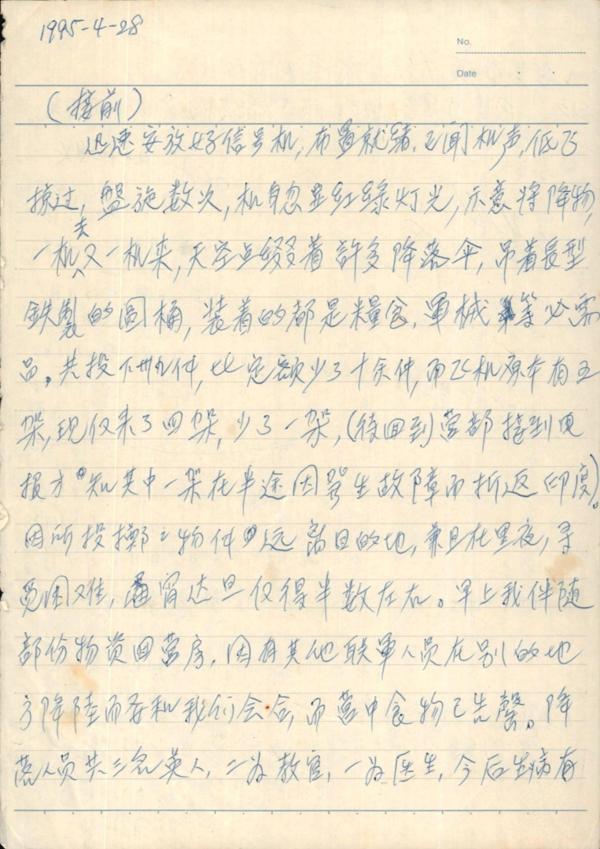 1995-4-28
No.
Date
(接前)
迅速安放好信号机,布置就绪,已闻机声,低飞
掠过,盤旋数次,机身忽显红綠灯光,示意将降物,
一机去又一机来,天空点缀着許多降落伞,吊着長型
鉄製的圆桶,装着的都是糧食、軍械等必需
品。共投下卅九件,比定额少了十余件,而飞机原本有五
架,现仅来了四架,少了一架,(待回到营部接到电
报才知其中一架在半途因發生故障而折返印度)。
因所投擲之物件远离目的地,兼且在黑夜,寻
觅困难,通宵达旦仅得半数左右。早上我伴随
部份物资回营房,因有其他联軍人员在别的地
方降陸而要和我们会合,而营中食物已告罄。降
落人员共三名英人,二为教官,一为医生,今后生病有